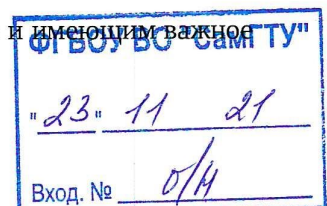 и имеющим важное
ФГБОУ ВО "СамГТУ"
"23" 11 21
Вход. № б/н